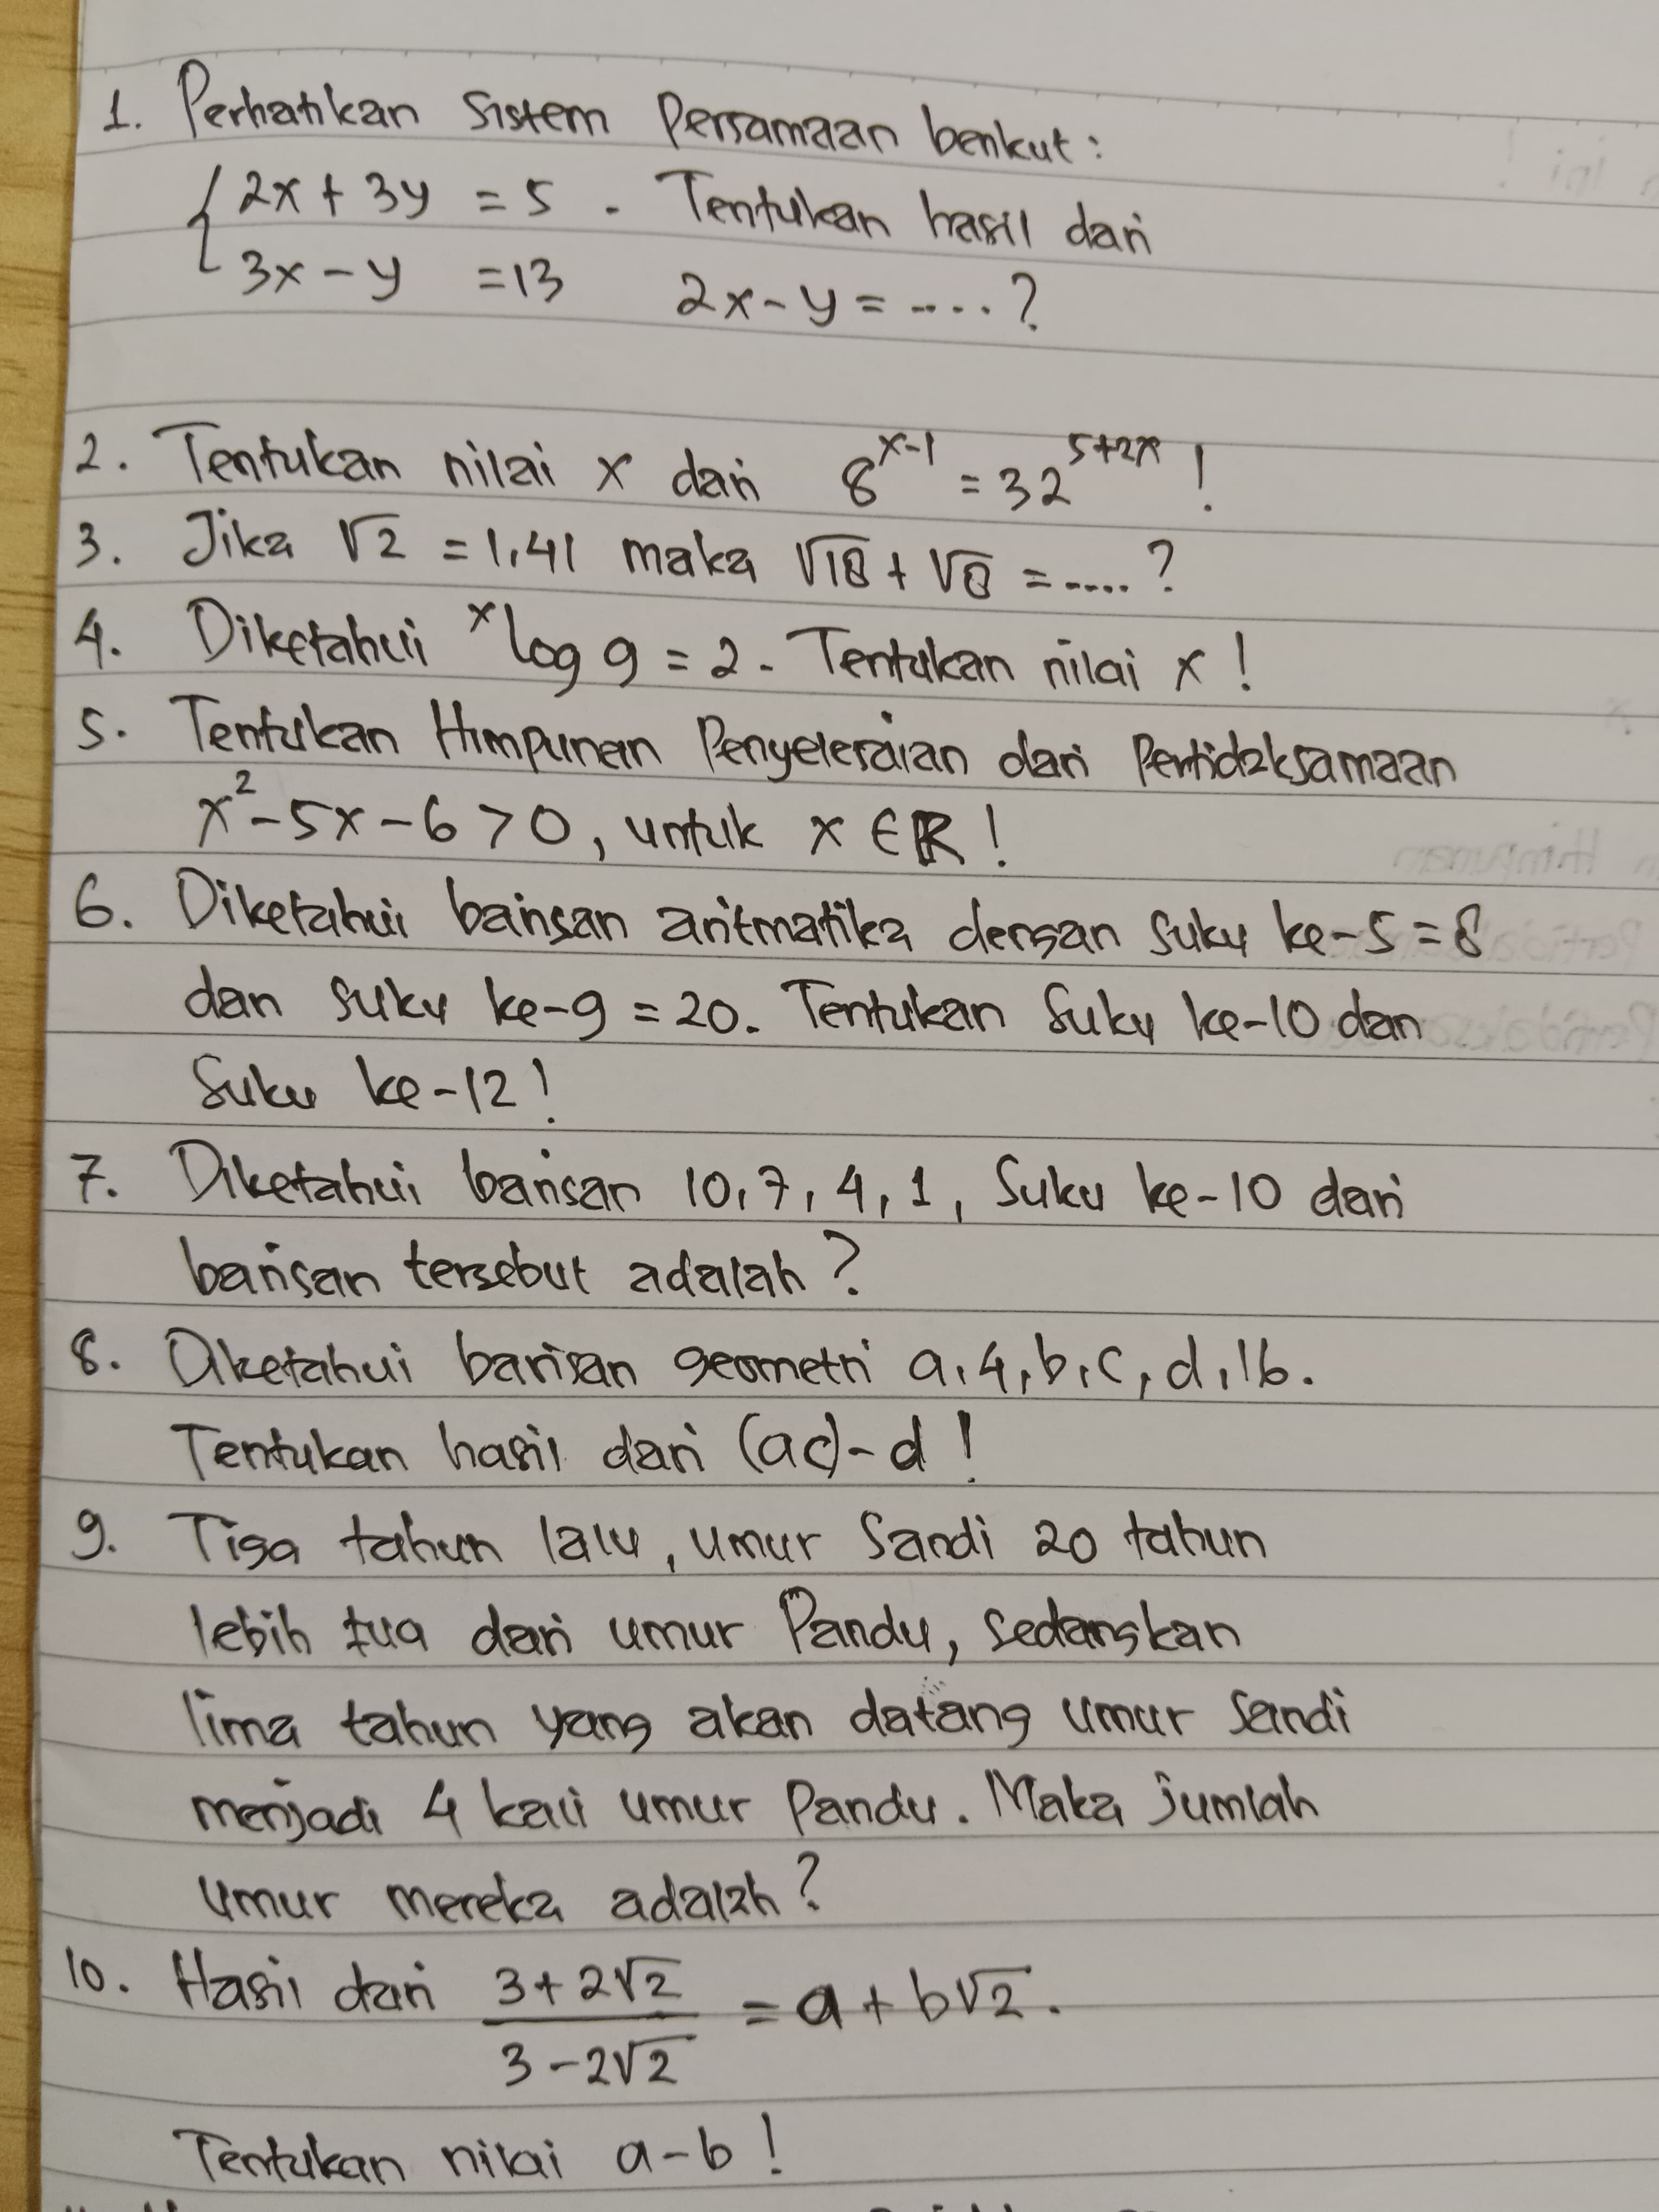 1. Perhatikan sistem Persamaan berikut:
{ 2x + 3y = 5 . Tentukan hasil dari
3x - y = 13 2x - y = ..... ?
2. Tentukan nilai x dari 8^(x-1) = 32^(5+2x) !
3. Jika √2 = 1,41 maka √18 + √8 = ..... ?
4. Diketahui ˣlog 9 = 2. Tentukan nilai x !
5. Tentukan Himpunan Penyelesaian dari Pertidaksamaan
x² - 5x - 6 > 0, untuk x ∈ R !
6. Diketahui barisan aritmatika dengan suku ke-5 = 8
dan suku ke-9 = 20. Tentukan Suku ke-10 dan
Suku ke-12 !
7. Diketahui barisan 10, 7, 4, 1, Suku ke-10 dari
barisan tersebut adalah ?
8. Diketahui barisan geometri a, 4, b, c, d, 16.
Tentukan hasil dari (ac) - d !
9. Tiga tahun lalu, umur Sandi 20 tahun
lebih tua dari umur Pandu, sedangkan
lima tahun yang akan datang umur Sandi
menjadi 4 kali umur Pandu. Maka jumlah
umur mereka adalah ?
10. Hasil dari (3 + 2√2)/(3 - 2√2) = a + b√2.
Tentukan nilai a - b !